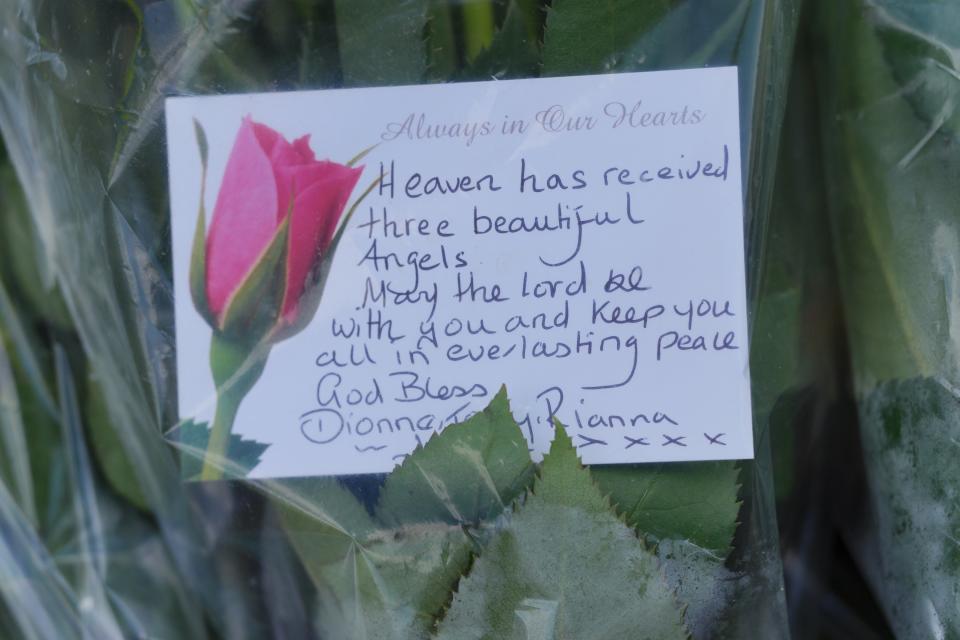 Always in Our Hearts
Heaven has received
three beautiful
Angels.
May the lord be
with you and keep you
all in everlasting peace
God Bless
Dionna Rianna
x x x x